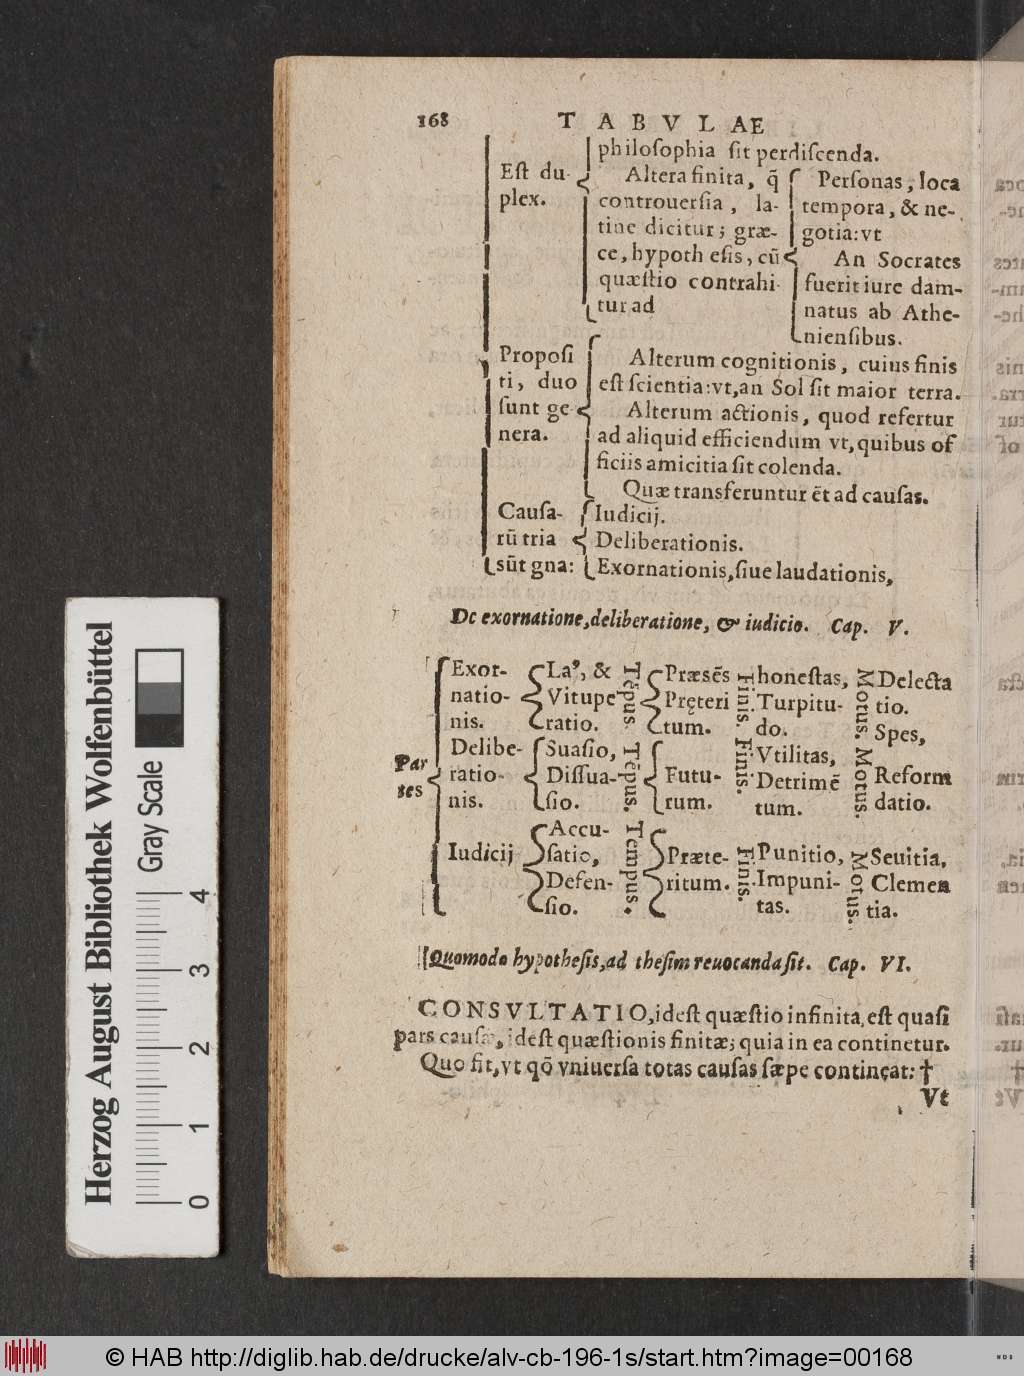 168 TABVLAE
philoſophia ſit perdiſcenda.
Eſt du-
plex.
Altera finita, q̃
controuerſia, la-
tine dicitur; græ-
ce, hypoth eſis, cū
quæſtio contrahi-
tur ad
Perſonas, loca
tempora, & ne-
gotia: vt
An Socrates
fuerit iure dam-
natus ab Athe-
nienſibus.
Propoſi
ti, duo
ſunt ge-
nera.
Alterum cognitionis, cuius finis
eſt ſcientia: vt, an Sol ſit maior terra.
Alterum actionis, quod refertur
ad aliquid efficiendum vt, quibus of
ficiis amicitia ſit colenda.
Quæ transferuntur ēt ad cauſas.
Cauſa-
rū tria
sūt gna:
Iudicij.
Deliberationis.
Exornationis, ſiue laudationis,
De exornatione, deliberatione, & iudicio. Cap. V.
Par
tes
Exor-
natio-
nis.
La⁹, &
Vitupe
ratio.
Tēpus.
Præsēs
Pręteri
tum.
Finis.
honeſtas,
Turpitu-
do.
Motus.
Delecta
tio.
Spes,
Delibe-
ratio-
nis.
Suaſio,
Diſſua-
ſio.
Tēpus.
Futu-
rum.
Finis.
Vtilitas,
Detrimē
tum.
Motus.
Reform
datio.
Iudicij
Accu-
ſatio,
Defen-
ſio.
Tempus.
Præte-
ritum.
Finis.
Punitio,
Impuni-
tas.
Motus.
Seuitia,
Clemen
tia.
Quomodo hypotheſis, ad theſim reuocanda ſit. Cap. VI.
CONSVLTATIO, id eſt quæſtio infinita, eſt quaſi
pars cauſæ, id eſt quæſtionis finitæ; quia in ea continetur.
Quo fit, vt qō vniuerſa totas cauſas ſæpe contineat: †
Vt
Herzog August Bibliothek Wolfenbüttel
Gray Scale
0 1 2 3 4
© HAB http://diglib.hab.de/drucke/alv-cb-196-1s/start.htm?image=00168